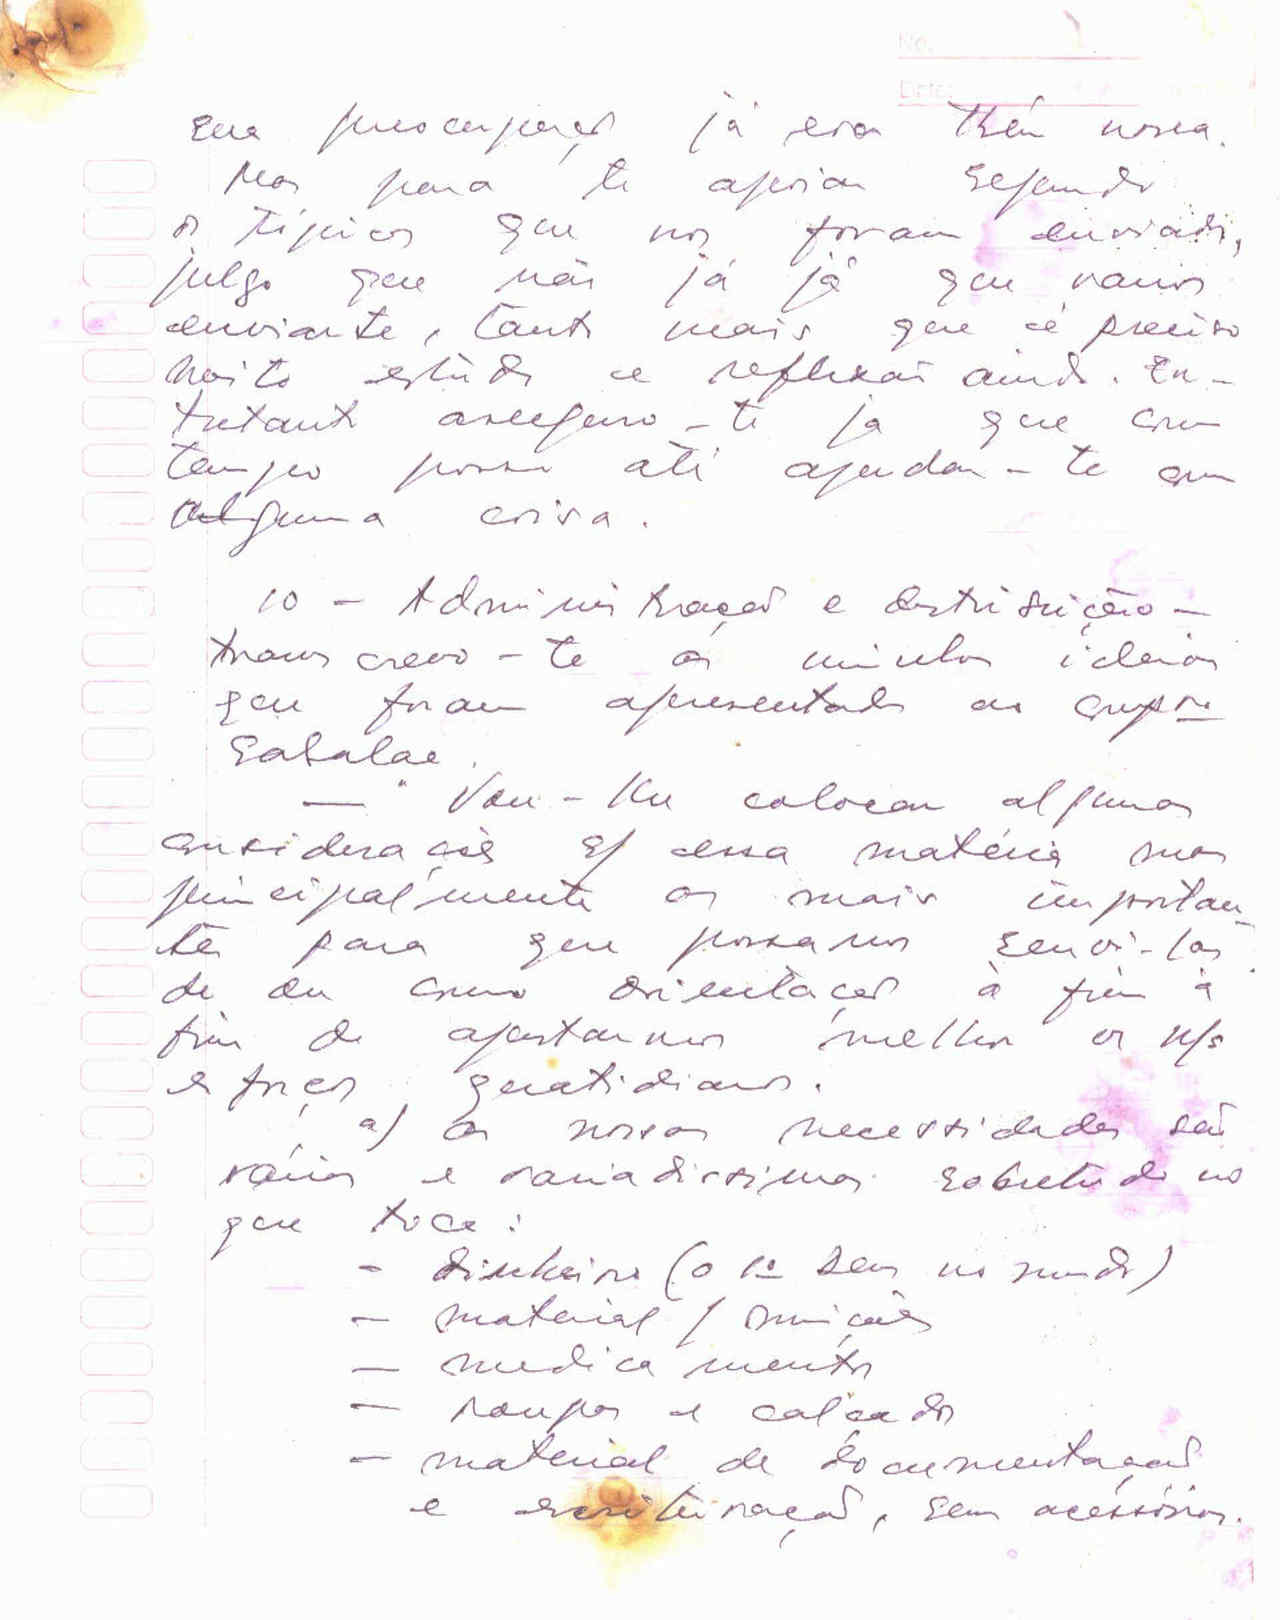 No.
Date:
sua preocupação já era tbém nossa.
Mas para te apoiar segundo
os tópicos que nos foram enviados,
julgo que não já já que vamos
enviar-te, tanto mais que é preciso
muito estudo e reflexão ainda. En-
tretanto asseguro-te já que com
tempo posso até ajudar-te em
alguma coisa.
10 - Administração e distribuição -
transcrevo-te as minhas ideias
que foram apresentadas ao
Sabalae.
— " Vou-lhe colocar algumas
considerações s/ essa matéria mas
principalmente as mais importan-
tes para que possamos serví-las
de como orientação à fim à
fim de ajustarmos melhor os n/s
esforços quotidianos.
a) as nossas necessidades são
várias e variadissimas sobretudo no
que toca:
- dinheiro (o 1º bem no mundo)
- material / munições
- medicamentos
- roupas e calçados
- material de documentação
e escrituração, sem acéssórios.